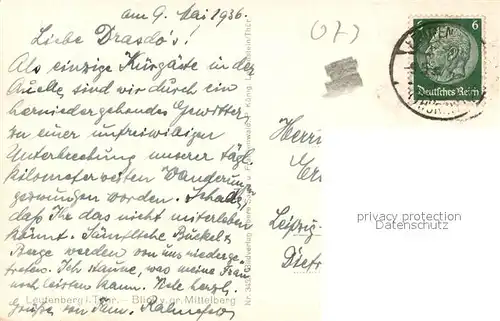 am 9. Mai 1936.
Liebe Drasdo's!
Als einzige Kurgäste in der
sind wir durch ein
herniedergehendes Gewitter
zu einer unfreiwilligen
Unterbrechung unserer tägl.
kilometerweiten Wanderung
gezwungen worden. Schade,
daß Ihr das nicht miterleben
könnt. Sämtliche Buckel &
Berge werden von uns niederge-
treten. Ich staune, was meine Frau
noch leisten kann. Viele herzl.
Grüße von Ihrem
Leutenberg i. Thür. — Blick v. gr. Mittelberg
6
Deutsches Reich
Herrn
Leipzig
property protection
AnsichtskartenCenter.com